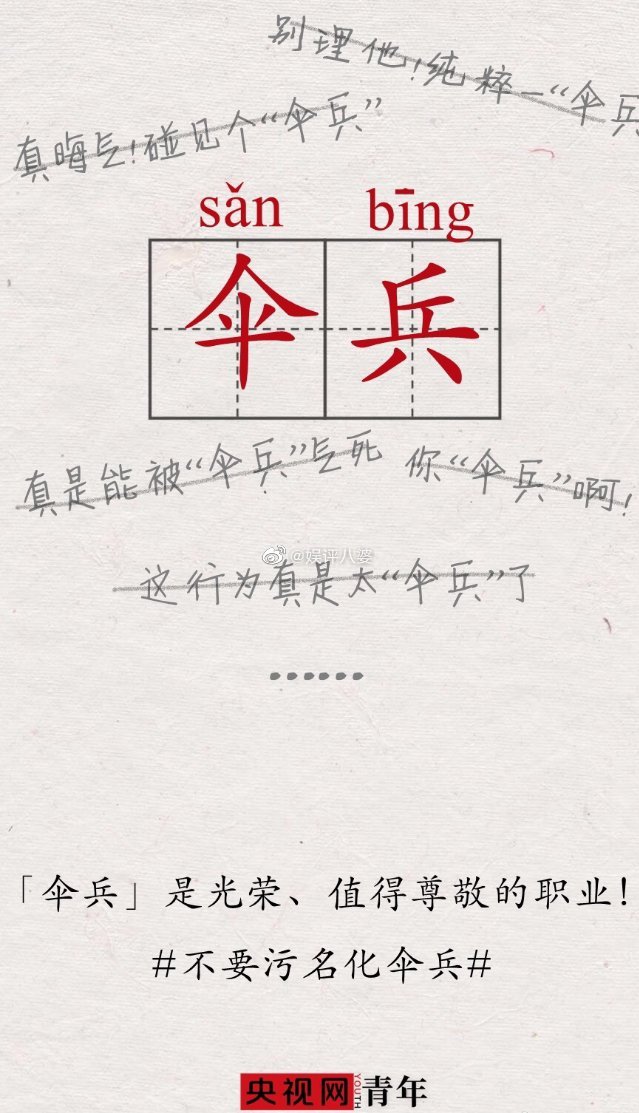 别理他！纯粹一“伞兵
真晦气！碰见个“伞兵”
sǎn bīng
伞兵
真是能被“伞兵”气死
你“伞兵”啊！
@娱评八婆
这行为真是太“伞兵”了
……
「伞兵」是光荣、值得尊敬的职业！
#不要污名化伞兵#
央视网YOUTH青年